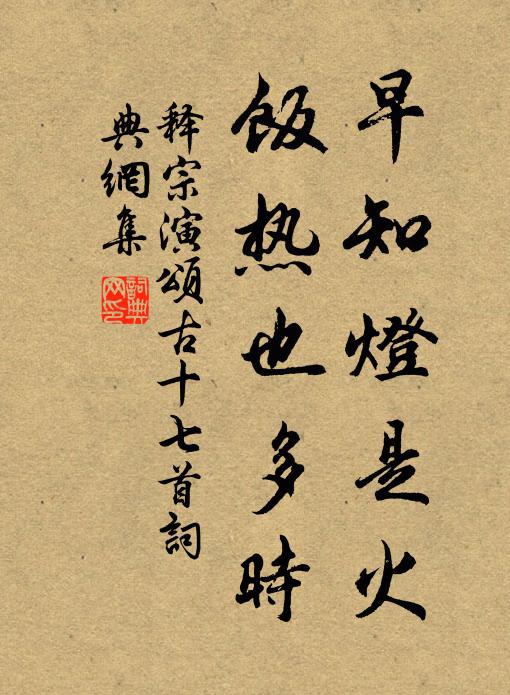 早知燈是火
飯热也多時
释宗演頌古十七首詞
典網集
詞典
网印